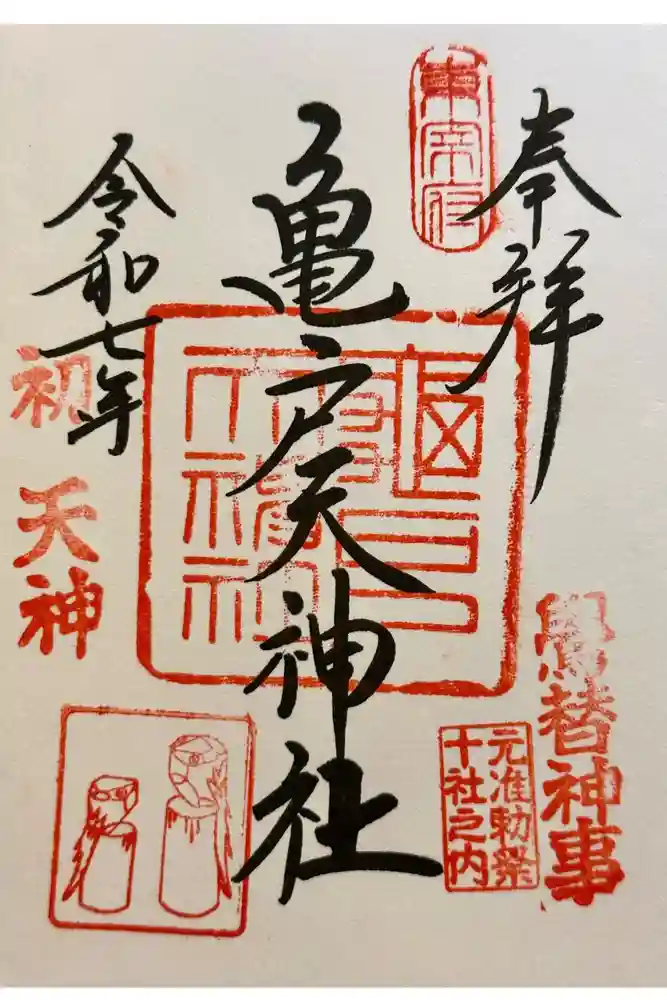 奉拝
東宰府
亀戸天神社
令和七年
初天神
鷽替神事
元准勅祭
十社之内